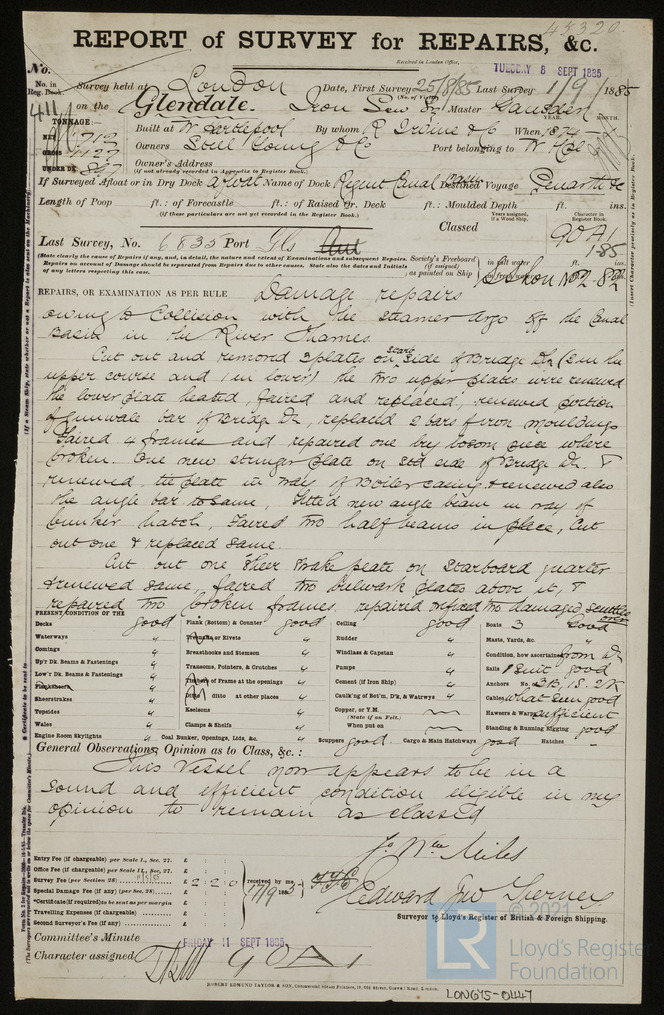 47320
REPORT of SURVEY for REPAIRS, &c.
Received in London Office,
TUESDAY 8 SEPT 1885
No.
No. in Reg. Book.
411
Survey held at London Date, First Survey 25/8/85 Last Survey 1/9/1885
(No. of Visits)
on the Glendale. Iron Scw Sr. Master
TONNAGE:—
NET 719
GROSS 1127
UNDER DK 897
YEAR. MONTH.
Built at W Hartlepool By whom R Irvine & Co When 1874
Owners Still Young & Co Port belonging to W Hpl
Owner's Address
(if not already recorded in Appendix to Register Book.)
If Surveyed Afloat or in Dry Dock afloat Name of Dock Regent Canal Basin Destined Voyage Penarth &c
Length of Poop ft.: of Forecastle ft.: of Raised Qr. Deck ft.: Moulded Depth ft. ins.
(if these particulars are not yet recorded in the Register Book.)
Years assigned, if a Wood Ship.
Character in Register Book.
Classed 90A1
1.85
Last Survey, No. 6835 Port Gls
(State clearly the cause of Repairs if any, and, in detail, the nature and extent of Examinations and subsequent Repairs.
Repairs on account of Damage should be separated from Repairs due to other causes. State also the dates and Initials
of any letters respecting this case.
Society's Freeboard (if assigned) as painted on Ship
in salt water ft. in.
in fresh water
REPAIRS, OR EXAMINATION AS PER RULE Damage repairs
owing to Collision with the steamer Argo off the Canal
Basin in the River Thames
Cut out and removed 3 plates on Starb side of Bridge Dk (2 in the
upper course and 1 in lower) the two upper plates were renewed
the lower plate heated, faired and replaced; renewed portion
of gunwale bar of Bridge Dk, replaced 2 bars of iron mouldings
Faired 4 frames and repaired one by bosom piece where
broken. One new stringer plate on Stbd side of Bridge Dk. &
renewed, the plate in way of Boiler casing & renewed also
the angle bar to same, fitted new angle beam in way of
bunker hatch, Faired two half beams in place, Cut
out one & replaced same.
Cut out one Sheer Strake plate on Starboard quarter
& renewed same, faired two bulwark plates above it, &
repaired two broken frames. repaired or faired two damaged scuttles
PRESENT CONDITION OF THE
Decks good
Waterways "
Comings "
Up'r Dk. Beams & Fastenings "
Low'r Dk. Beams & Fastenings "
Planksheers
Sheerstrakes "
Topsides "
Wales "
Engine Room Skylights "
Plank (Bottom) & Counter good
Treenails or Rivets "
Breasthooks and Stemson "
Transoms, Pointers, & Crutches "
Timbers of Frame at the openings "
ditto ditto at other places "
Keelsons "
Clamps & Shelfs "
Coal Bunker, Openings, Lids, &c. "
Ceiling good
Rudder "
Windlass & Capstan "
Pumps "
Cement (if Iron Ship) "
Caulk'ng of Bot'm, D'k, & Watrwys "
Copper, or Y.M.
(State if on Felt.)
When put on
Scuppers good
Cargo & Main Hatchways good
Boats 3 Good
Masts, Yards, &c. "
Condition, how ascertained from Dk
Sails 1 Suit good
Anchors No. 3B, 1S, 2K
Cables what seen good
Hawsers & Warps sufficient
Standing & Running Rigging good
Hatches "
General Observations, Opinion as to Class, &c.:
This Vessel now appears to be in a
sound and efficient condition eligible in my
opinion to remain as classed
Entry Fee (if chargeable) per Scale I., Sec. 27. £
Office Fee (if chargeable) per Scale II., Sec. 27. £
Survey Fee (per Section 28) £ 2 2 0
Special Damage Fee (if any) (per Sec. 28) £
*Certificate (if required) to be sent as per margin
Travelling Expenses (if chargeable) £
Second Surveyor's Fee (if any) £
received by me,
17/9/1885
Jo Wm Miles
Surveyor to Lloyd's Register of British & Foreign Shipping.
Committee's Minute FRIDAY 11 SEPT 1885
Character assigned 90A1
ROBERT EDMUND TAYLOR & SON, Commercial Steam Printers, 19, Old Street, Goswell Road, London.
LON675-0144T
© 2021
LR
Lloyd's Register
Foundation